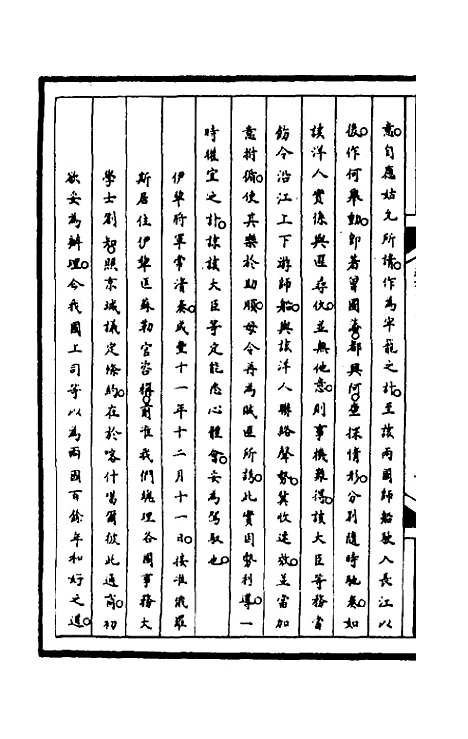 意自應姑允所請作為牢籠之計至該兩國師船駛入長江以
後作何舉動即著曾國藩都興阿查探情形分別隨時馳奏如
該洋人實係與匪尋仇並無他意則事機難得該大臣等務當
飭令沿江上下游師船與該洋人聯絡聲勢冀收速效並當加
意拊循使其樂於助順毋令再為賊匪所誘此實因勢利導一
時權宜之計諒該大臣等定能悉心體會妥為駕馭也
伊犂將軍常清奏咸豐十一年十二月十一日接准俄羅
斯居住伊犂匡蘇勒官咨稱前准我們總理各國事務大
學士劄知照京城議定條約在於喀什噶爾彼此通商初
欲妥為辦理今我國上司等以為兩國百餘年和好之道